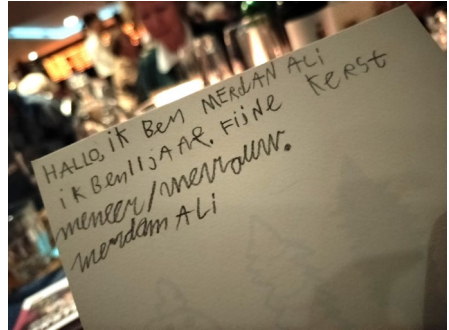 HALLO, iK Ben MERdAN ALi
iK Ben 11 jAAR. FijNe KeRST
meneer/mevrouw.
merdam ALi